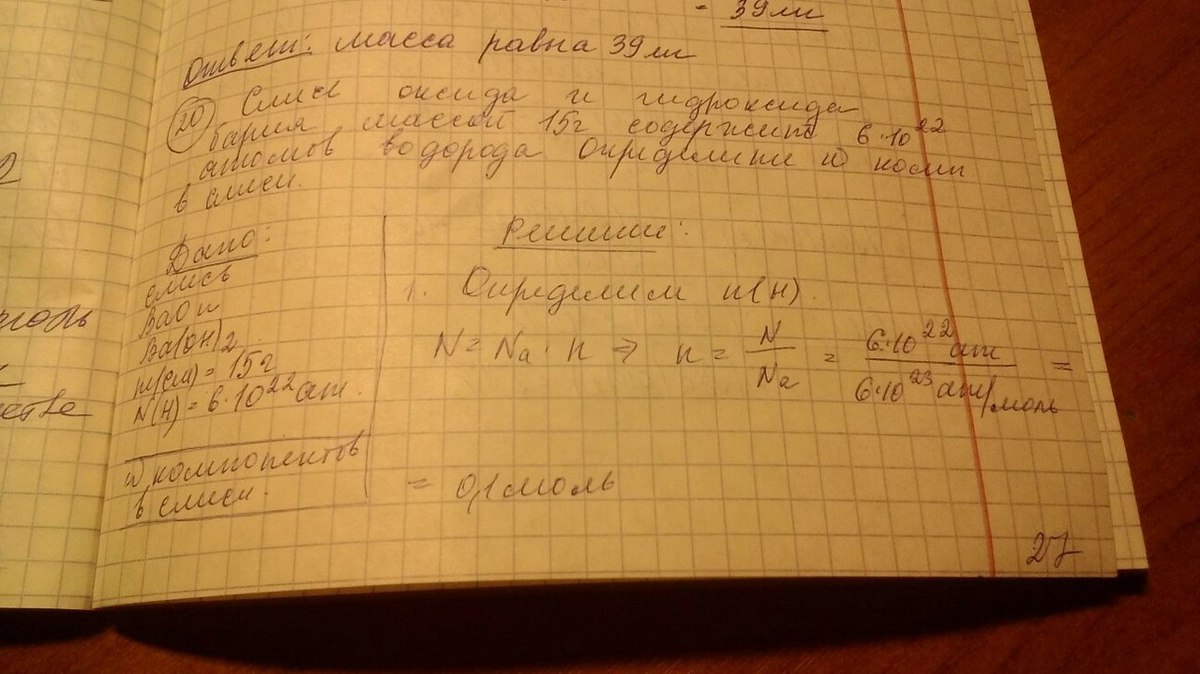 - 39 мл
Ответ: масса равна 39 мл
20 Смесь оксида и гидроксида
бария массой 15г содержит 6·10²²
атомов водорода. Определите ω комп
в смеси.
Дано:
смесь
BaO и
Ba(OH)2
m(см) = 15г
N(H) = 6·10²² ат.
ω компонентов
в смеси.
Решение:
1. Определим n(H).
N = Na · n ⇒ n = N/Na = 6·10²² ат / 6·10²³ ат/моль =
= 0,1 моль
27